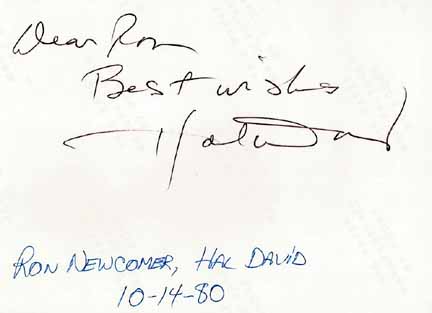 Dear Ron
Best wishes
Hal David
RON NEWCOMER, HAL DAVID
10-14-80